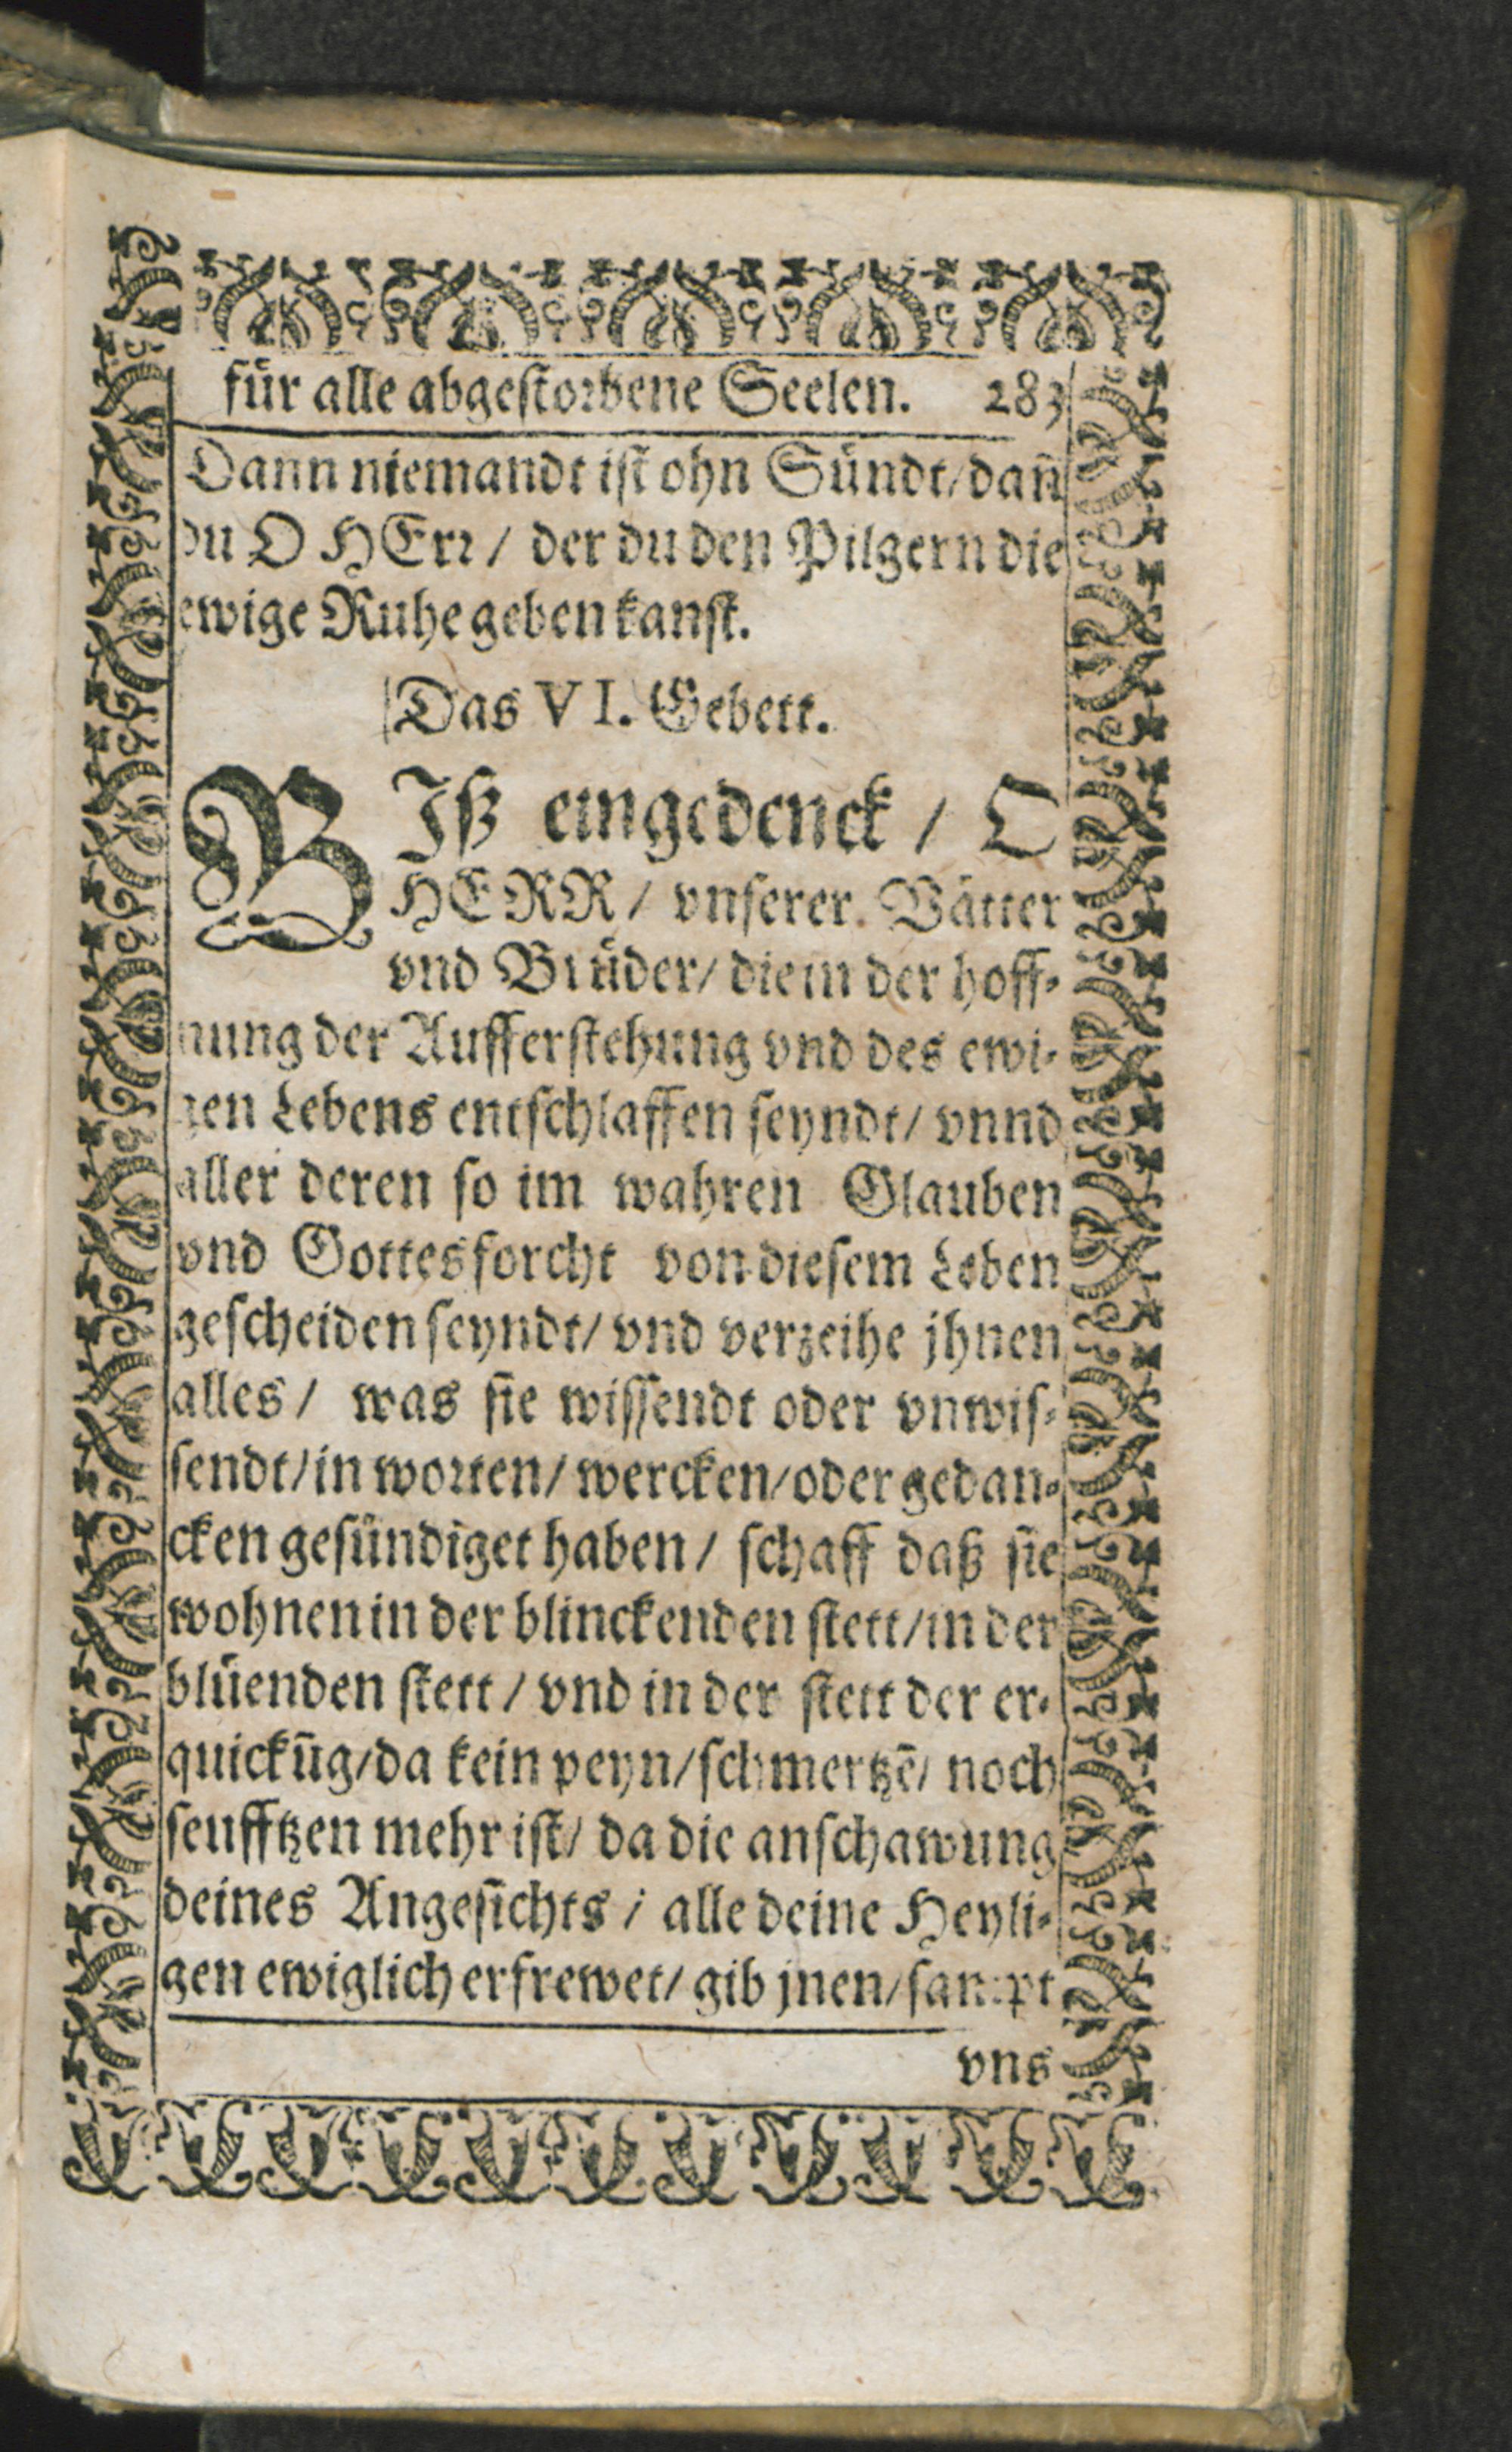 für alle abgestorbene Seelen. 283
Dann niemandt ist ohn Sündt/ dañ
du O HErr / der du den Pilgern die
ewige Ruhe geben kanst.
Das VI. Gebett.
BIß eingedenck / O
HERR / vnserer Vätter
vnd Brüder/ die in der hoff-
nung der Aufferstehung vnd des ewi-
gen Lebens entschlaffen seyndt/ vnnd
aller deren so im wahren Glauben
vnd Gottesforcht von diesem Leben
gescheiden seyndt/ vnd verzeihe jhnen
alles / was sie wissendt oder vnwis-
sendt/ in worten/ wercken/ oder gedan-
cken gesündiget haben / schaff daß sie
wohnen in der blinckenden stett/ in der
blüenden stett / vnd in der stett der er-
quickūg/ da kein peyn/ schmertzē/ noch
seufftzen mehr ist/ da die anschawung
deines Angesichts / alle deine Heyli-
gen ewiglich erfrewet/ gib jnen/ sampt
vns